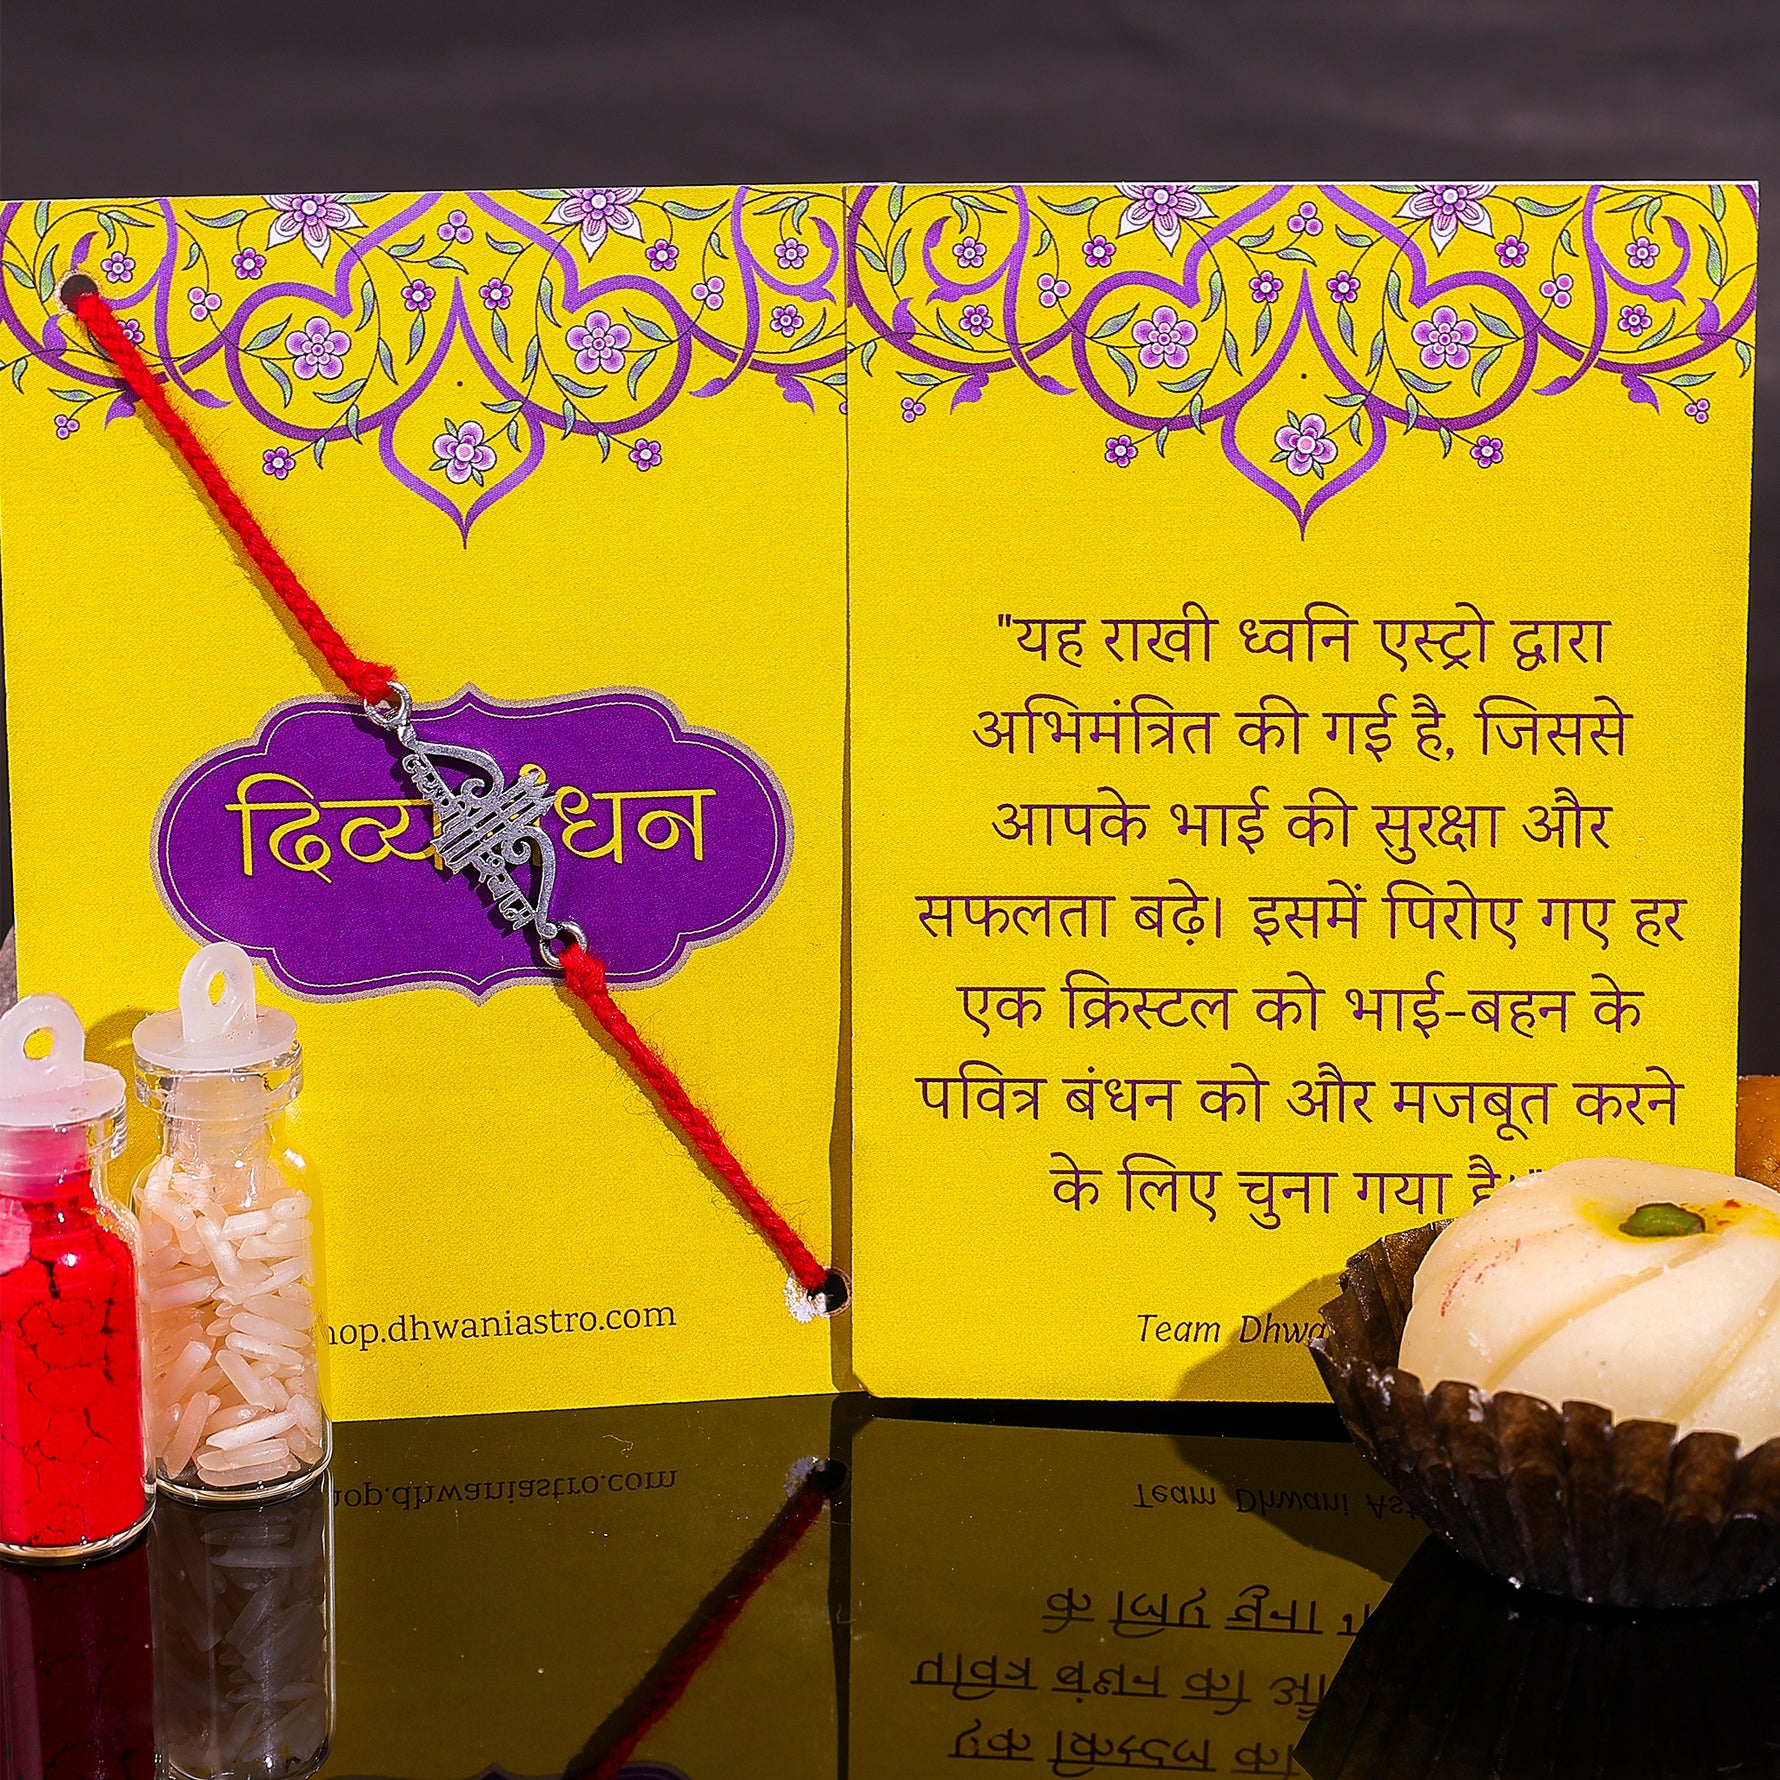 shop.dhwaniastro.com
"यह राखी ध्वनि एस्ट्रो द्वारा
अभिमंत्रित की गई है, जिससे
आपके भाई की सुरक्षा और
सफलता बढ़े। इसमें पिरोए गए हर
एक क्रिस्टल को भाई-बहन के
पवित्र बंधन को और मजबूत करने
के लिए चुना गया है।"
Team